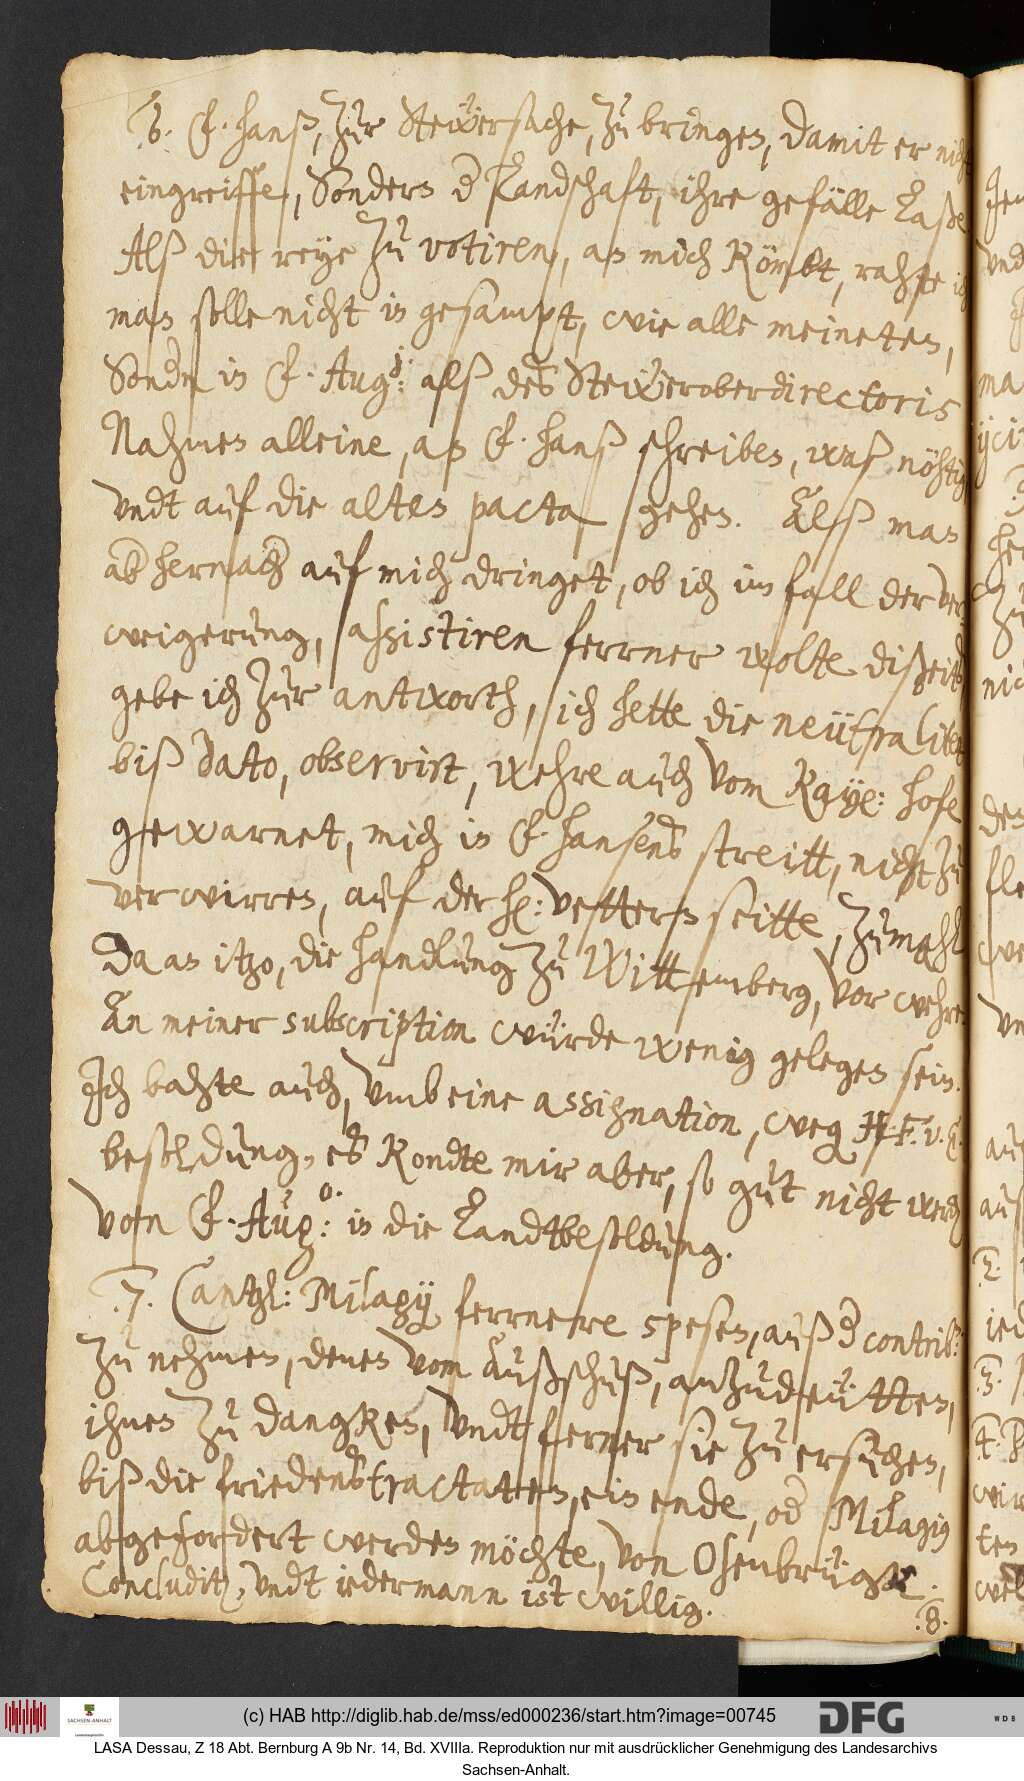 6. F. Hanß, zur Steẅersache, zu bringen, damit er nicht
eingreiffe, Sondern d Landschaft, ihre gefälle Laße
Alß die reye zu votiren, an mich kömbt, rahte ich
man solle nicht in gesampt, wie alle meineten,
Sondn in F. Aug:j alß des Steẅeroberdirectoris
Nahmen alleine, an F. Hanß schreiben, waß nöhtig
undt auf die alten pacta gehen. Alß man
ab hernach auf mich dringet, ob ich im fall der ver¬
weigerung, assistiren ferrner wolte dißeits
gebe ich zur antworth, ich hette die neütralitet
biß dato, observirt, wehre auch vom Kayl: hofe
gewarnet, mich in F. Hansens streitt, nicht zu
verwirren, auf der H: Vettern seitte, zumahl
Da an itzo, die handlung zu Wittemberg, vor wehre
An meiner subscription würde wenig gelegen sein.
Ich bahte auch, umb eine assignation, weg H. F. v. E.
besoldung, es kondte mir aber, so gut nicht werden
vom F. Aug:o in die Landtbesoldung.
.7. Cantzl: Milagÿ ferrnere spesen, auß d contrib:
zu nehmen, denen vom außschuß, anzudeütten,
ihnen zu dangken, undt fferner sie zu ersuchen,
biß die friedenstractatten, ein ende, od Milagiȷ
abgefordert werden möchte, von Osenbrügk.
Concludit, undt iedermann ist willig.
.8.
(c) HAB http://diglib.hab.de/mss/ed000236/start.htm?image=00745
SACHSEN-ANHALT
DFG
WDB
LASA Dessau, Z 18 Abt. Bernburg A 9b Nr. 14, Bd. XVIIIa. Reproduktion nur mit ausdrücklicher Genehmigung des Landesarchivs
Sachsen-Anhalt.